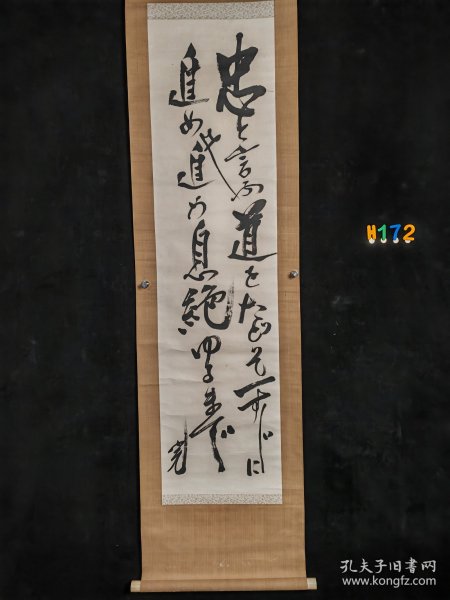 忠と言ふ道をたゞ一すじに
進め進め息絶ゆるまで
H172
孔夫子旧书网
www.kongfz.com